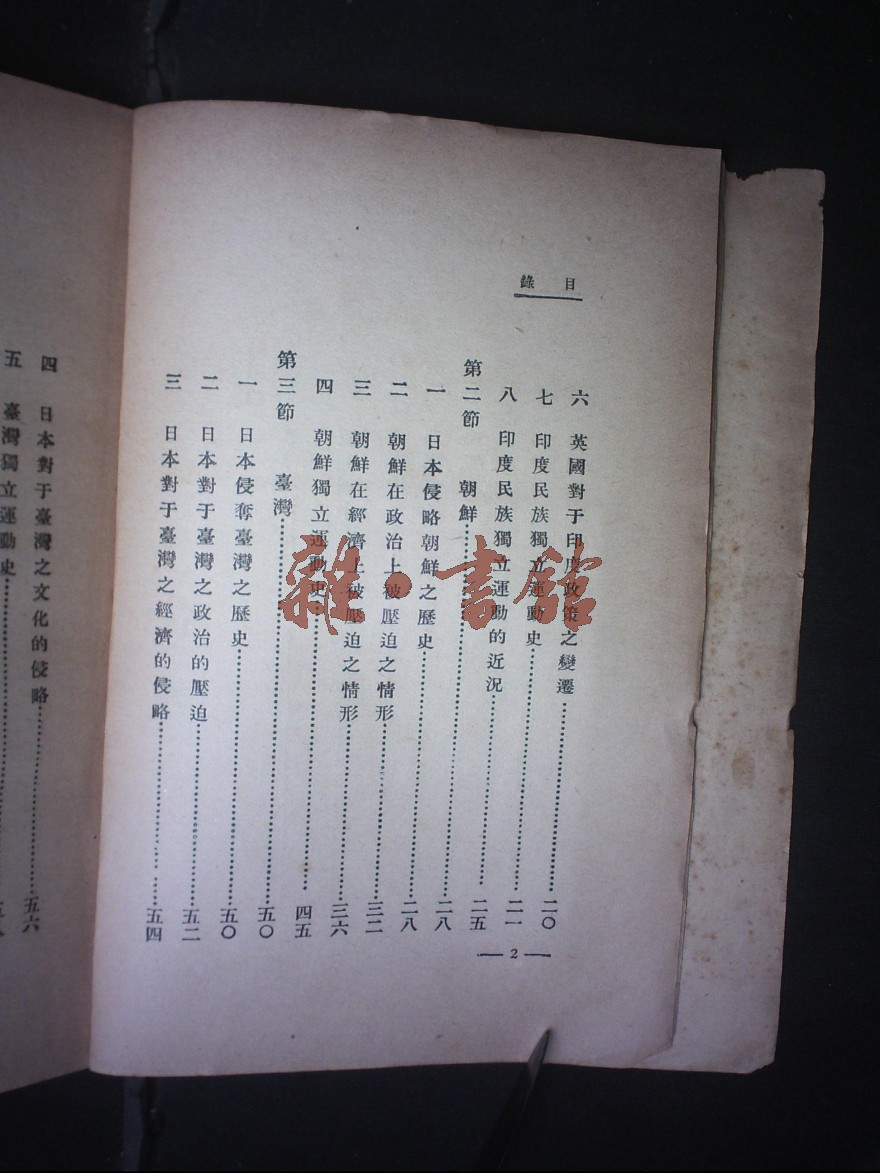 目錄
六 英國對于印度政策之變遷……二〇
七 印度民族獨立運動史……二一
八 印度民族獨立運動的近況……二五
第二節 朝鮮……二八
一 日本侵略朝鮮之歷史……二八
二 朝鮮在政治上被壓迫之情形……三二
三 朝鮮在經濟上被壓迫之情形……三六
四 朝鮮獨立運動史……四五
第三節 臺灣……五〇
一 日本侵奪臺灣之歷史……五〇
二 日本對于臺灣之政治的壓迫……五二
三 日本對于臺灣之經濟的侵略……五四
— 2 —
四 日本對于臺灣之文化的侵略……五六
五 臺灣獨立運動史……
雜·書館